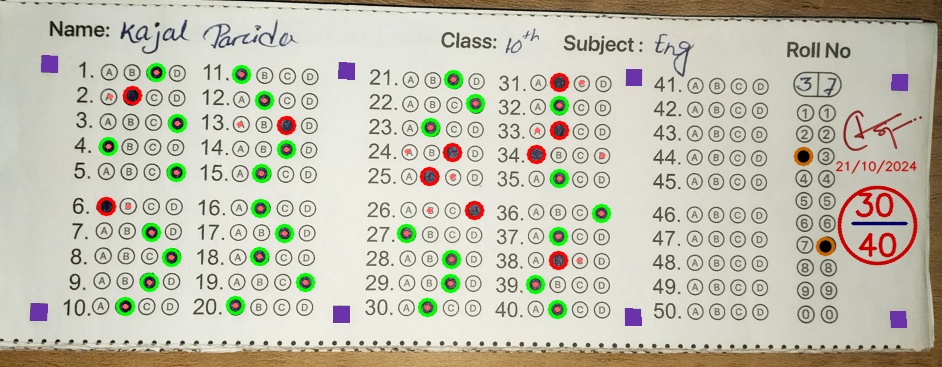 Name: Kajal Parida
Class: 10th Subject: Eng
Roll No
37
1. A B D
2. A C D
3. A B C
4. B C D
5. A B C
6. B C D
7. A B D
8. A B C
9. A B D
10. A C D
11. B C D
12. A C D
13. A B D
14. A B D
15. A C D
16. A C D
17. A B D
18. A C D
19. A B C
20. B C D
21. A B D
22. A B C
23. A C D
24. A B D
25. A C D
26. A B C
27. B C D
28. A B D
29. A B D
30. A C D
31. A C D
32. A C D
33. A C D
34. B C D
35. A C D
36. A B C
37. A C D
38. A C D
39. B C D
40. A C D
41. A B C D
42. A B C D
43. A B C D
44. A B C D
45. A B C D
46. A B C D
47. A B C D
48. A B C D
49. A B C D
50. A B C D
1 1
2 2
3
4 4
5 5
6 6
7
8 8
9 9
0 0
21/10/2024
30
40